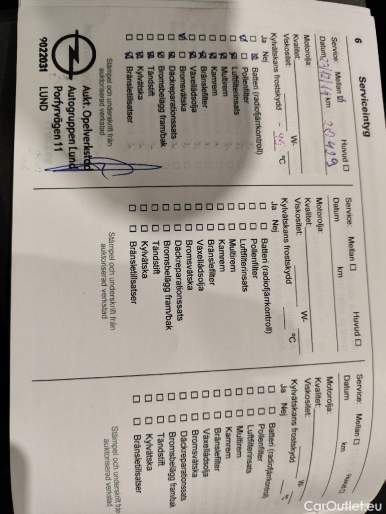 6 Serviceintyg
Service: Mellan Huvud
Datum 23/12/17 km 20429
Motorolja:
Kvalitet:
Viskositet: W-
Kylvätskans frostskydd °C
Ja Nej
Batteri (radiofjärrkontroll)
Pollenfilter
Luftfilterinsats
Multirem
Kamrem
Bränslefilter
Växellådsolja
Bromsvätska
Däckreparationssats
Bromsbelägg fram/bak
Tändstift
Kylvätska
Bränsletillsatser
Stämpel och underskrift från
auktoriserad verkstad
Aukt. Opelverkstad
Autogruppen Lund
Porfyrvägen 11
9022031 LUND
Service: Mellan Huvud
Datum km
Motorolja:
Kvalitet:
Viskositet: W-
Kylvätskans frostskydd °C
Ja Nej
Batteri (radiofjärrkontroll)
Pollenfilter
Luftfilterinsats
Multirem
Kamrem
Bränslefilter
Växellådsolja
Bromsvätska
Däckreparationssats
Bromsbelägg fram/bak
Tändstift
Kylvätska
Bränsletillsatser
Stämpel och underskrift från
auktoriserad verkstad
Service: Mellan Huvud
Datum km
Motorolja:
Kvalitet:
Viskositet: W-
Kylvätskans frostskydd
Ja Nej
Batteri (radiofjärrkontroll)
Pollenfilter
Luftfilterinsats
Multirem
Kamrem
Bränslefilter
Växellådsolja
Bromsvätska
Däckreparationssats
Bromsbelägg fram/bak
Tändstift
Kylvätska
Bränsletillsatser
Stämpel och underskrift från
auktoriserad verkstad
CarOutlet.eu